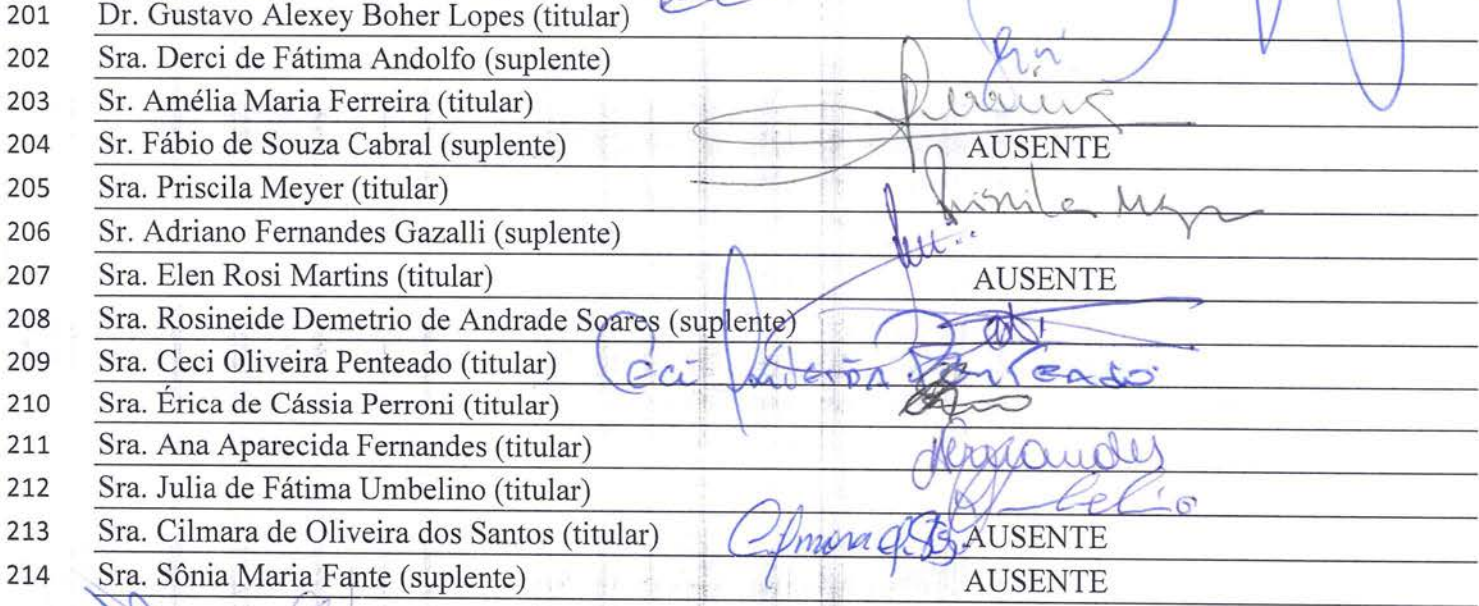 201 Dr. Gustavo Alexey Boher Lopes (titular)
202 Sra. Derci de Fátima Andolfo (suplente)
203 Sr. Amélia Maria Ferreira (titular) Ferreira
204 Sr. Fábio de Souza Cabral (suplente) AUSENTE
205 Sra. Priscila Meyer (titular) Priscila Meyer
206 Sr. Adriano Fernandes Gazalli (suplente)
207 Sra. Elen Rosi Martins (titular) AUSENTE
208 Sra. Rosineide Demetrio de Andrade Soares (suplente)
209 Sra. Ceci Oliveira Penteado (titular) Ceci Oliveira Penteado
210 Sra. Érica de Cássia Perroni (titular)
211 Sra. Ana Aparecida Fernandes (titular) Fernandes
212 Sra. Julia de Fátima Umbelino (titular) Umbelino
213 Sra. Cilmara de Oliveira dos Santos (titular) Cilmara AUSENTE
214 Sra. Sônia Maria Fante (suplente) AUSENTE